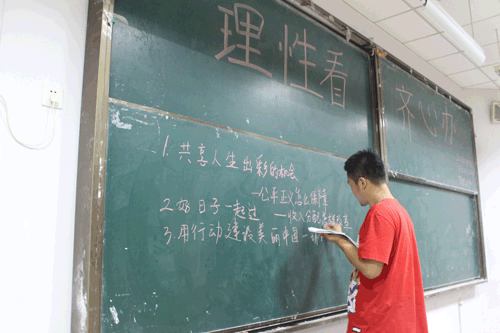 理性看 齐心办
1.共享人生出彩的机会
—公平正义怎么保障
2.好日子一起过 —收入分配
3.用行动建设美丽中国—